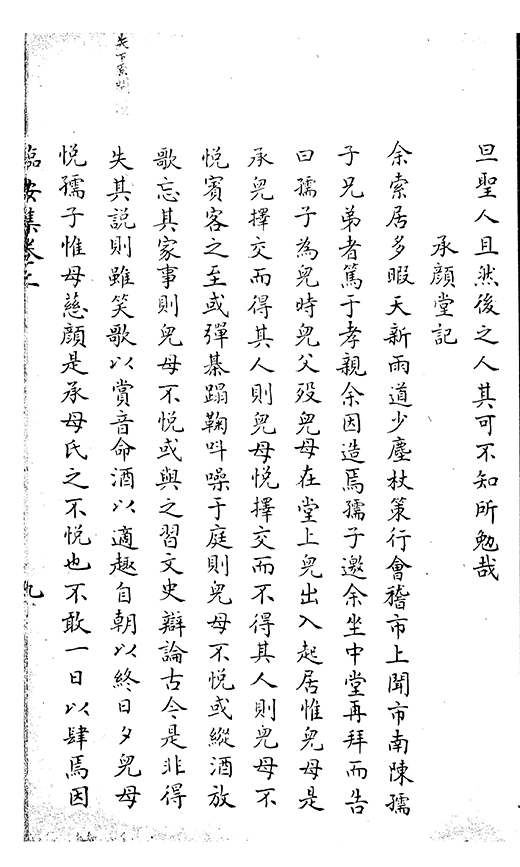 旦聖人且然後之人其可不知所勉哉
承顏堂記
余索居多暇天新雨道少塵杖策行會稽市上聞市南陳孺
子兄弟者篤于孝親余因造焉孺子邀余坐中堂再拜而告
曰孺子為兒時兒父歿兒母在堂上兒出入起居惟兒母是
承兒擇交而得其人則兒母悅擇交而不得其人則兒母不
悅賓客之至或彈棊蹋鞠呌噪于庭則兒母不悅或縱酒放
歌忘其家事則兒母不悅或與之習文史辯論古今是非得
失其説則雖笑歌以賞音命酒以適趣自朝以終日夕兒母
悅孺子惟母慈顏是承母氏之不悅也不敢一日以肆焉因
臨安集卷之
九
失下